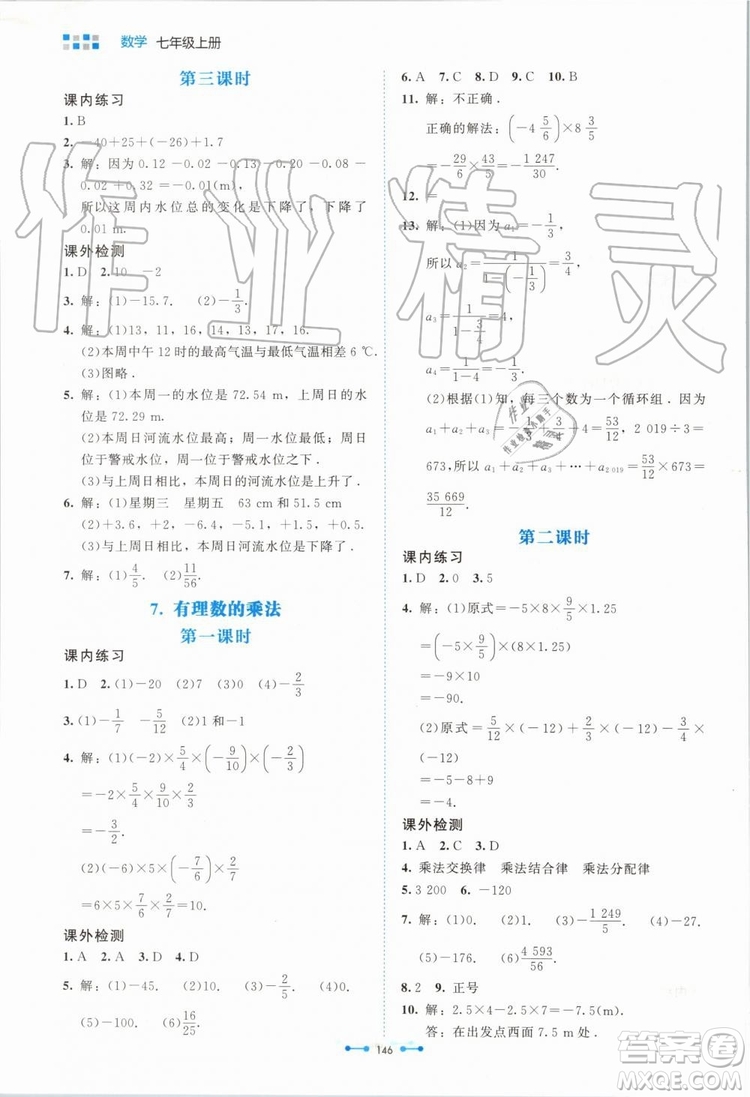 数学 七年级上册
第三课时
课内练习
1. B
2. －40＋25＋(－26)＋1.7
3. 解：因为 0.12－0.02－0.13－0.20－0.08－
0.02＋0.32＝－0.01(m)，
所以这周内水位总的变化是下降了，下降了
0.01 m．
课外检测
1. D 2. 10 －2
3. 解：(1)－15.7． (2)－1/3．
4. 解：(1)13，11，16，14，13，17，16．
(2)本周中午 12 时的最高气温与最低气温相差 6 ℃．
(3)图略．
5. 解：(1)本周一的水位是 72.54 m，上周日的水
位是 72.29 m．
(2)本周日河流水位最高；周一水位最低；周日
位于警戒水位之上；周一位于警戒水位之下．
(3)与上周日相比，本周日河流水位上升了．
6. 解：(1)星期三 星期五 63 cm 和 51.5 cm
(2)＋3.6，＋2，－6.4，－1，＋5，－2，＋0.5．
(3)与上周日相比，本周日河流水位上升了．
7. 解：(1)5/42． (2)11/56．
7. 有理数的乘法
第一课时
课内练习
1. D 2. (1)－20 (2)7 (3)0 (4)－2/3
3. (1)－1/7 －5/12 (2)1 和－1
4. 解：(1)(－2)×5/4×(－9/10)×(－2/3)
＝－2×5/4×9/10×2/3
＝－3/2．
(2)(－6)×5×(－7/6)×2/7
＝6×5×7/6×2/7＝10．
课外检测
1. A 2. A 3. D 4. D
5. 解：(1)－45． (2)10． (3)－5/2． (4)0．
(5)－100． (6)16/25．
6. A 7. C 8. D 9. C 10. B
11. 解：不正确．
正确的解法：(－4 5/6)×8 3/5
＝－29/6×43/5＝－1 247/30．
12. ＝
13. 解：(1)因为 a₁＝－1/3，
所以 a₂＝1/(1－(－1/3))＝3/4，
a₃＝1/(1－3/4)＝4，
a₄＝1/(1－4)＝－1/3．
(2)根据(1)知，每三个数为一个循环组．又因为
a₁＋a₂＋a₃＝－1/3＋3/4＋4＝53/12，2 019÷3＝
673，所以 a₁＋a₂＋a₃＋…＋a₂ ₀₁₉＝53/12×673＝
35 669/12．
第二课时
课内练习
1. D 2. 0 3. 5
4. 解：(1)原式＝－5×8×9/5×1.25
＝(－5×9/5)×(8×1.25)
＝－9×10
＝－90．
(2)原式＝5/12×(－12)＋2/3×(－12)－3/4×
(－12)
＝－5－8＋9
＝－4．
课外检测
1. A 2. C 3. D
4. 乘法交换律 乘法结合律 乘法分配律
5. 3 200 6. －120
7. 解：(1)0． (2)－4． (3)－1 249/5． (4)－27．
(5)－176． (6)4 593/56．
8. 2 9. 正号
10. 解：2.5×4－2.5×7＝－7.5(m)．
答：在出发点西面 7.5 m 处．
146
作业精灵
答案圈
MXQE.COM